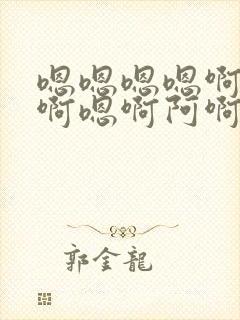 嗯嗯嗯嗯啊
啊嗯啊阿啊
郭金龍